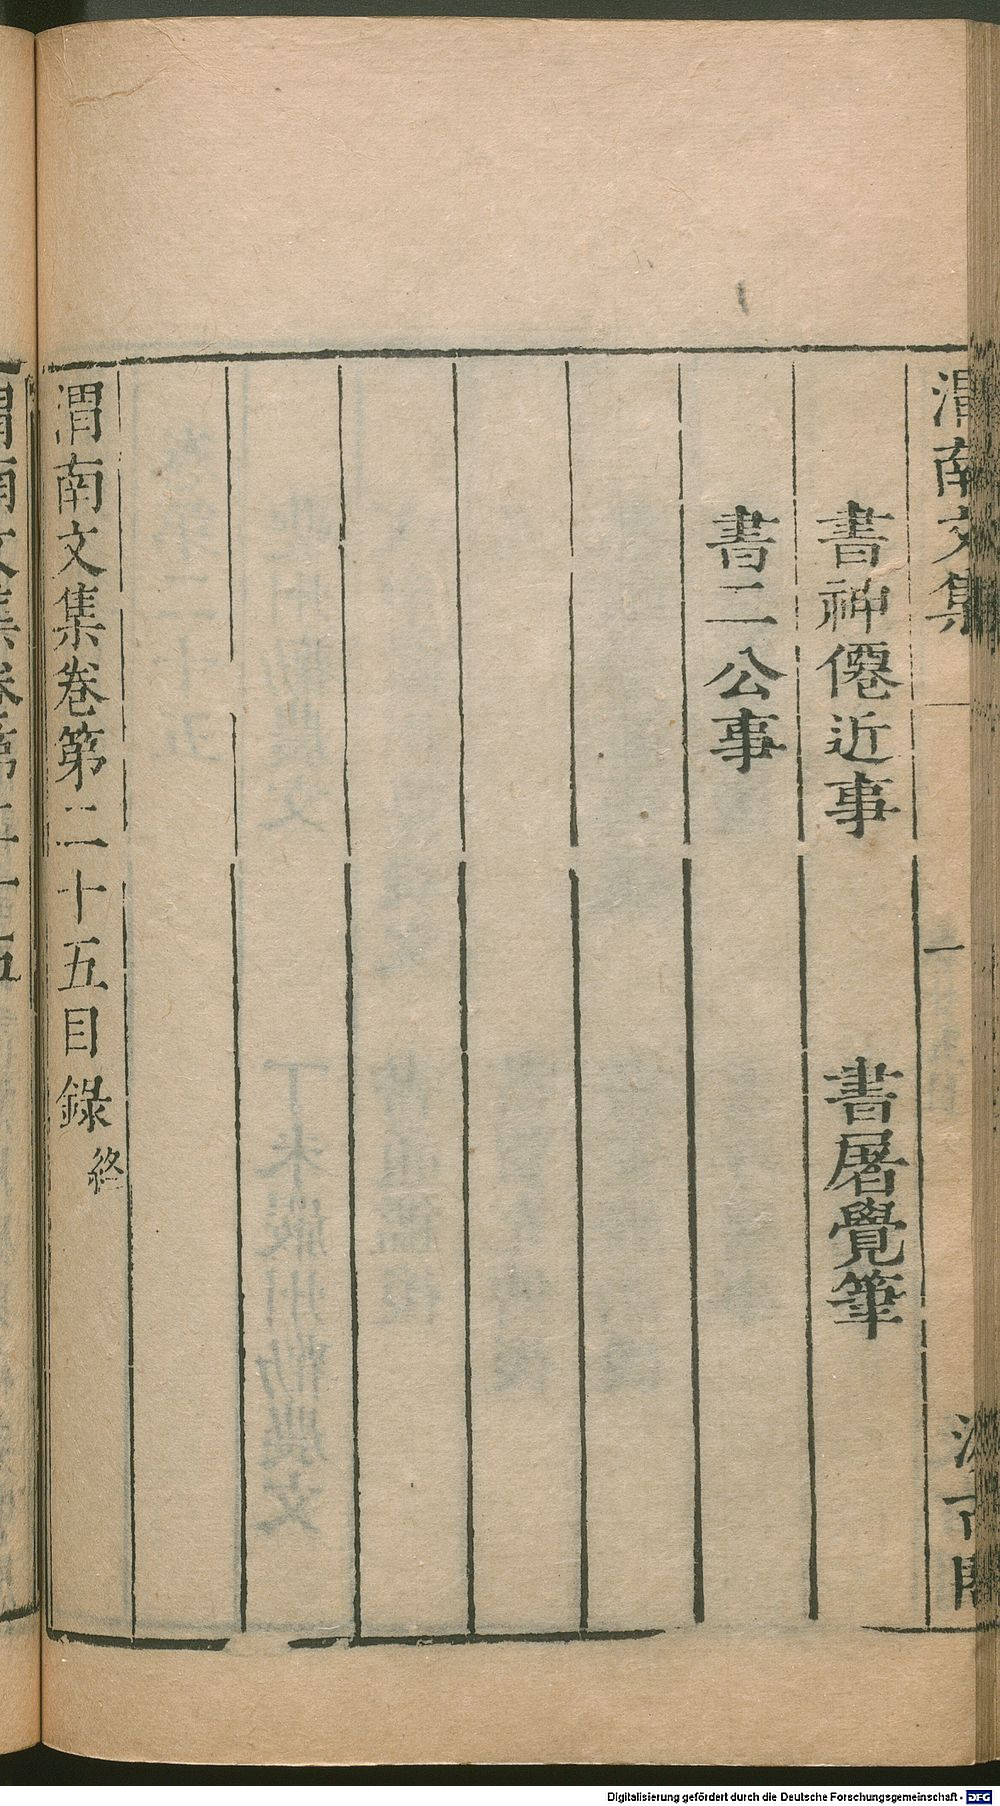 渭南文集
一
汲古閣
書神僊近事
書屠覺筆
書二公事
渭南文集卷第二十五目錄終
渭南文集卷第二十五
Digitalisierung gefördert durch die Deutsche Forschungsgemeinschaft - DFG